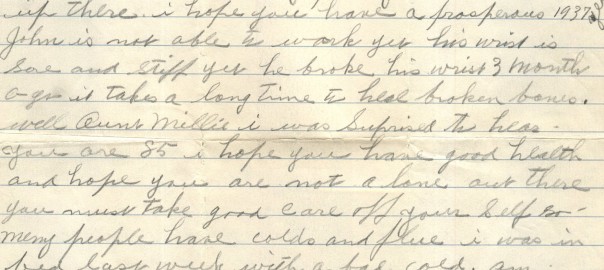 up there. i hope you have a prosperous 1937.
John is not able to work yet his wrist is
Sore and stiff yet he broke his wrist 3 month
a go it takes a long time to heal broken bones.
well Aunt Millie i was Suprised to hear
you are 85 i hope you have good health
and hope you are not a lone out there
you must take good care off your Self so
meny people have colds and flue i was in
bed last week with a bad cold. am